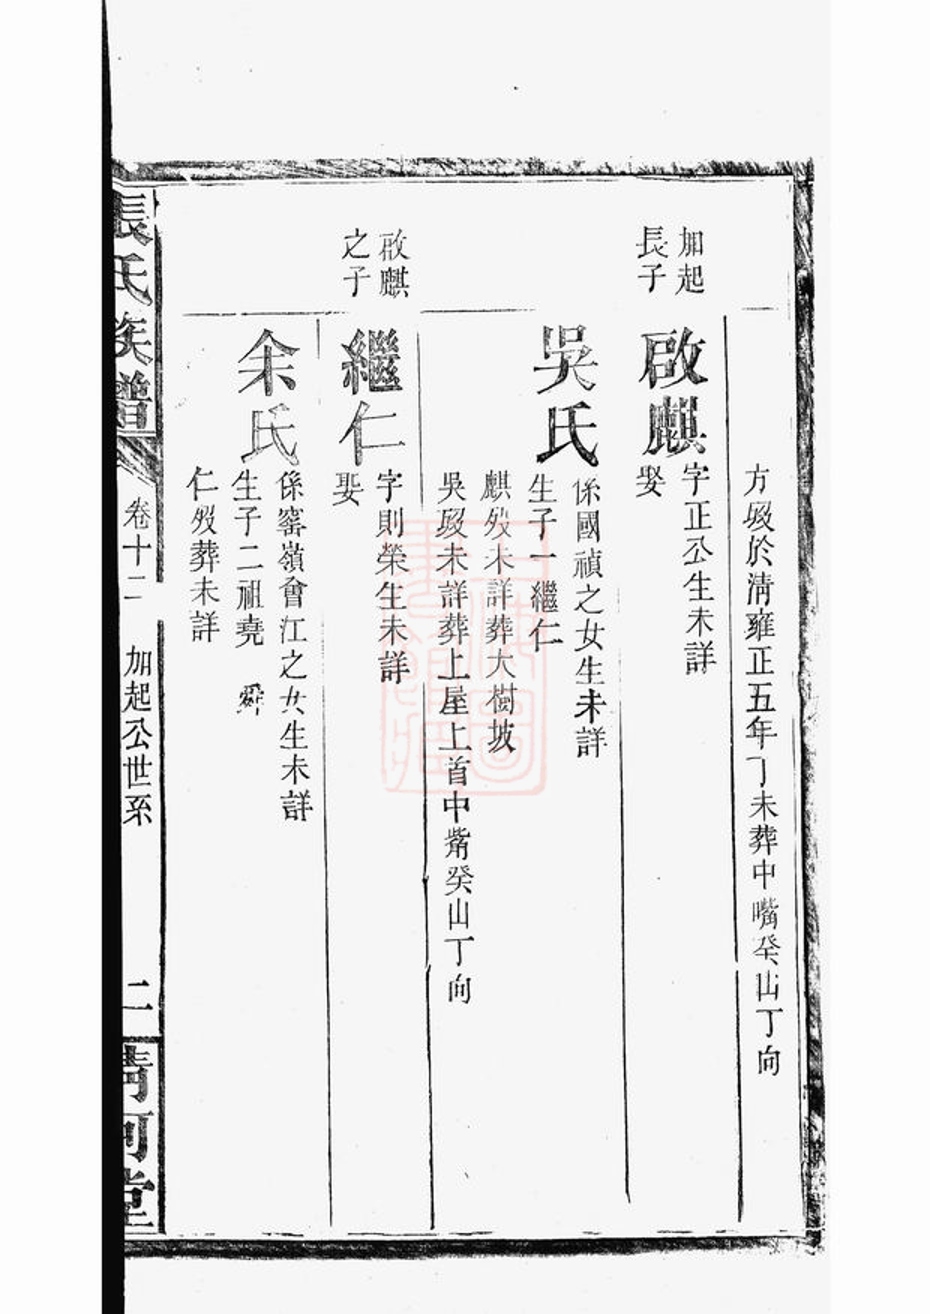 方歿於清雍正五年丁未葬中嘴癸山丁向
加起
長子
啟麒
字正公生未詳
娶
吳氏
係國禎之女生未詳
生子一繼仁
麒歿未詳葬大樹坡
吳歿未詳葬上屋上首中嘴癸山丁向
啟麒
之子
繼仁
字則榮生未詳
娶
余氏
係窰嶺會江之女生未詳
生子二祖堯 舜
仁歿葬未詳
張氏族譜
卷十二
加起公世系
二
清河堂